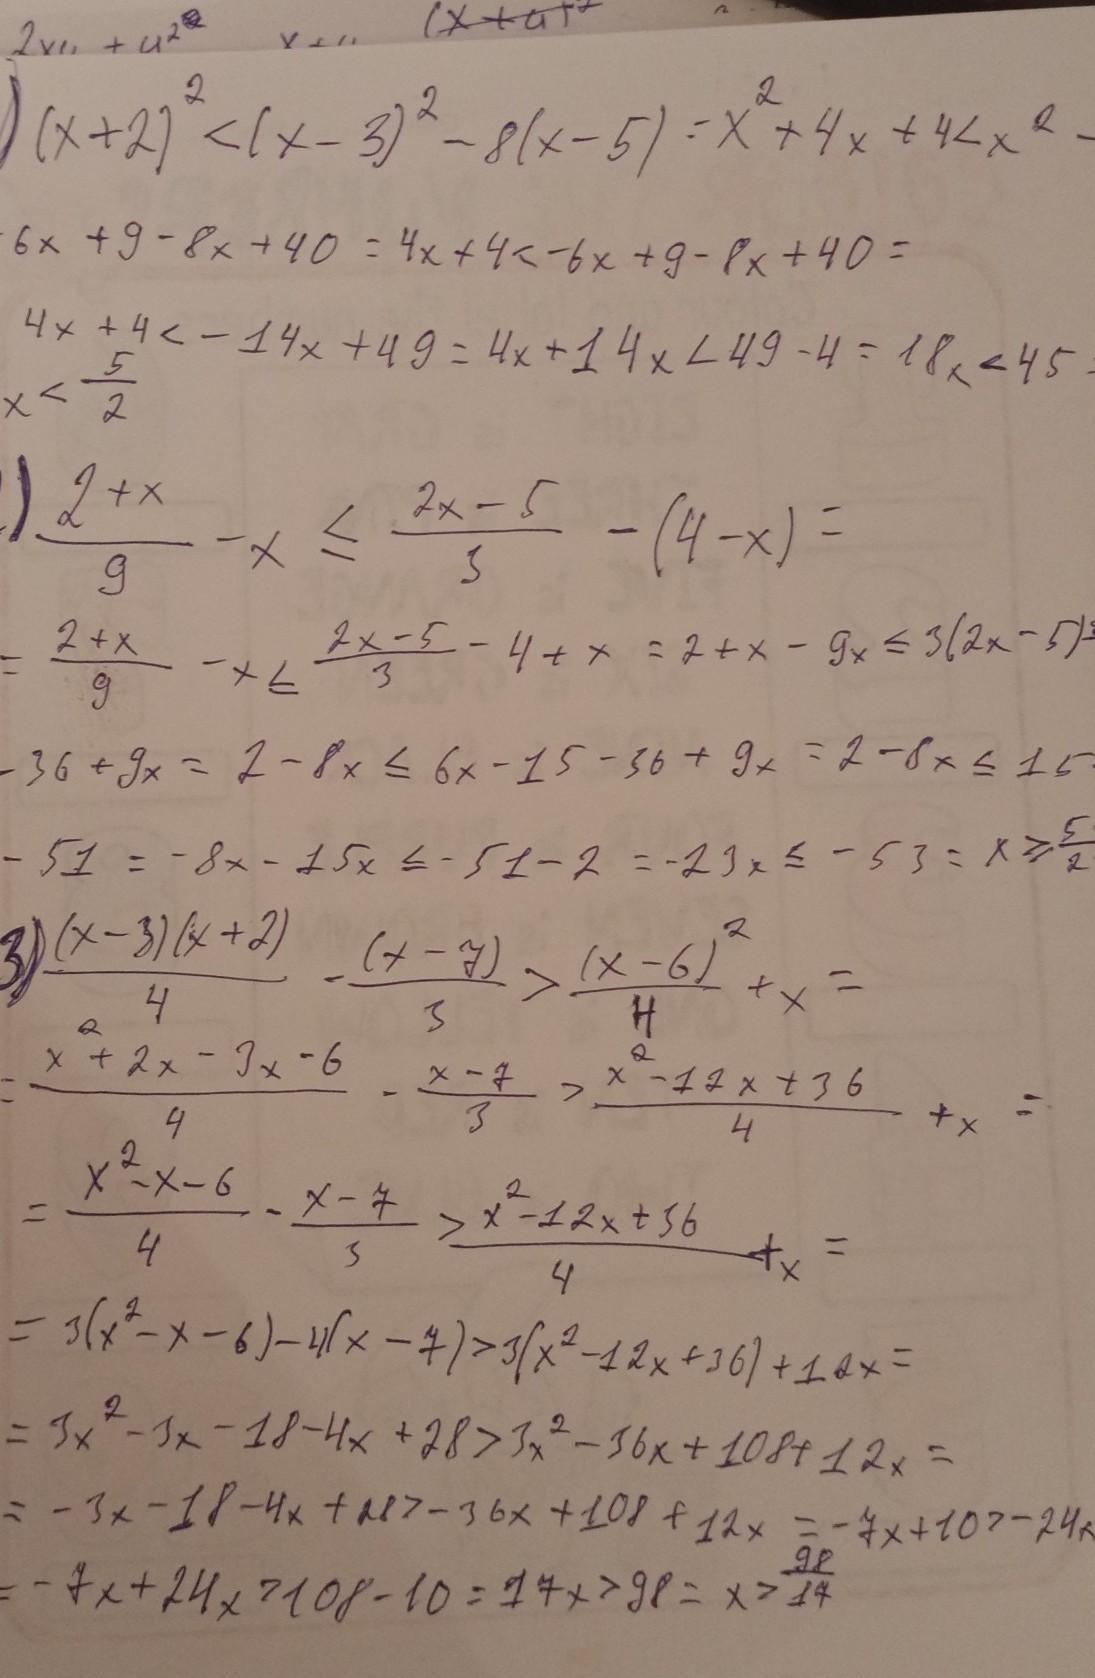 2xy + y²
(x+y)²
) (x+2)² < (x-3)² - 8(x-5) = x² + 4x + 4 < x² -
6x + 9 - 8x + 40 = 4x + 4 < -6x + 9 - 8x + 40 =
4x + 4 < -14x + 49 = 4x + 14x < 49 - 4 = 18x < 45 =
x < 5/2
) (2+x)/9 - x ≤ (2x-5)/3 - (4-x) =
= (2+x)/9 - x ≤ (2x-5)/3 - 4 + x = 2 + x - 9x ≤ 3(2x-5)
- 36 + 9x = 2 - 8x ≤ 6x - 15 - 36 + 9x = 2 - 8x ≤ 15
- 51 = -8x - 15x ≤ -51 - 2 = -23x ≤ -53 = x ≥ 5/2
3) (x-3)(x+2)/4 - (x-7)/3 > (x-6)²/4 + x =
= (x² + 2x - 3x - 6)/4 - (x-7)/3 > (x² - 12x + 36)/4 + x =
= (x² - x - 6)/4 - (x-7)/3 > (x² - 12x + 36)/4 + x =
= 3(x² - x - 6) - 4(x - 7) > 3(x² - 12x + 36) + 12x =
= 3x² - 3x - 18 - 4x + 28 > 3x² - 36x + 108 + 12x =
= -3x - 18 - 4x + 28 > -36x + 108 + 12x = -7x + 10 > -24x
= -7x + 24x > 108 - 10 = 17x > 98 = x > 98/17